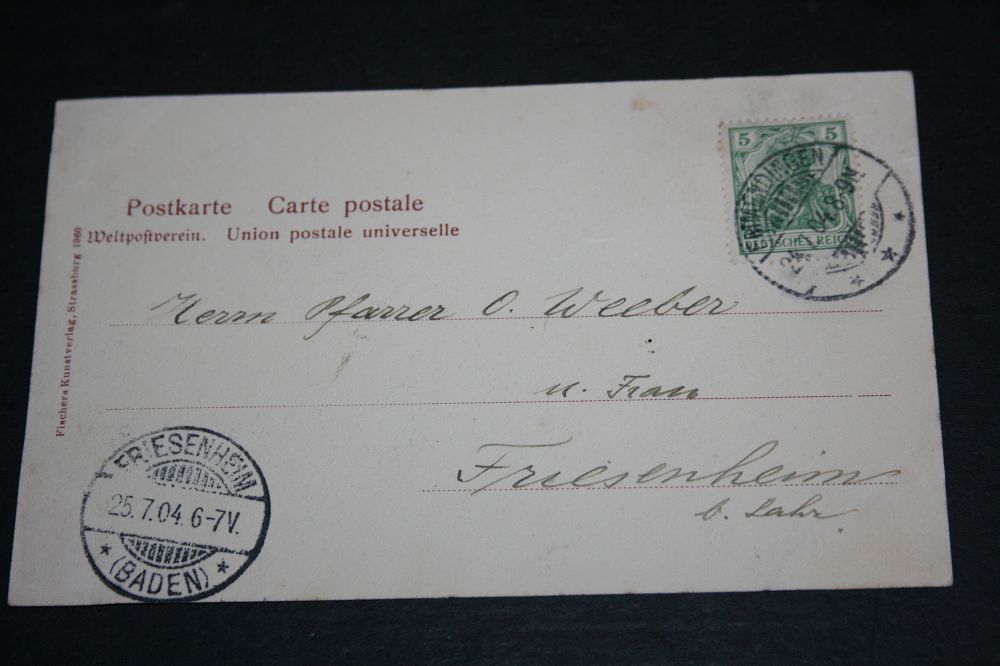 Postkarte Carte postale
Weltpostverein. Union postale universelle
Fischers Kunstverlag, Strassburg 1960
5 5
DEUTSCHES REICH
EMMENDINGEN
8-9N.
Herrn Pfarrer O. Weeber
u. Frau
Friesenheim
b. Lahr
FRIESENHEIM
25.7.04. 6-7V.
* (BADEN) *